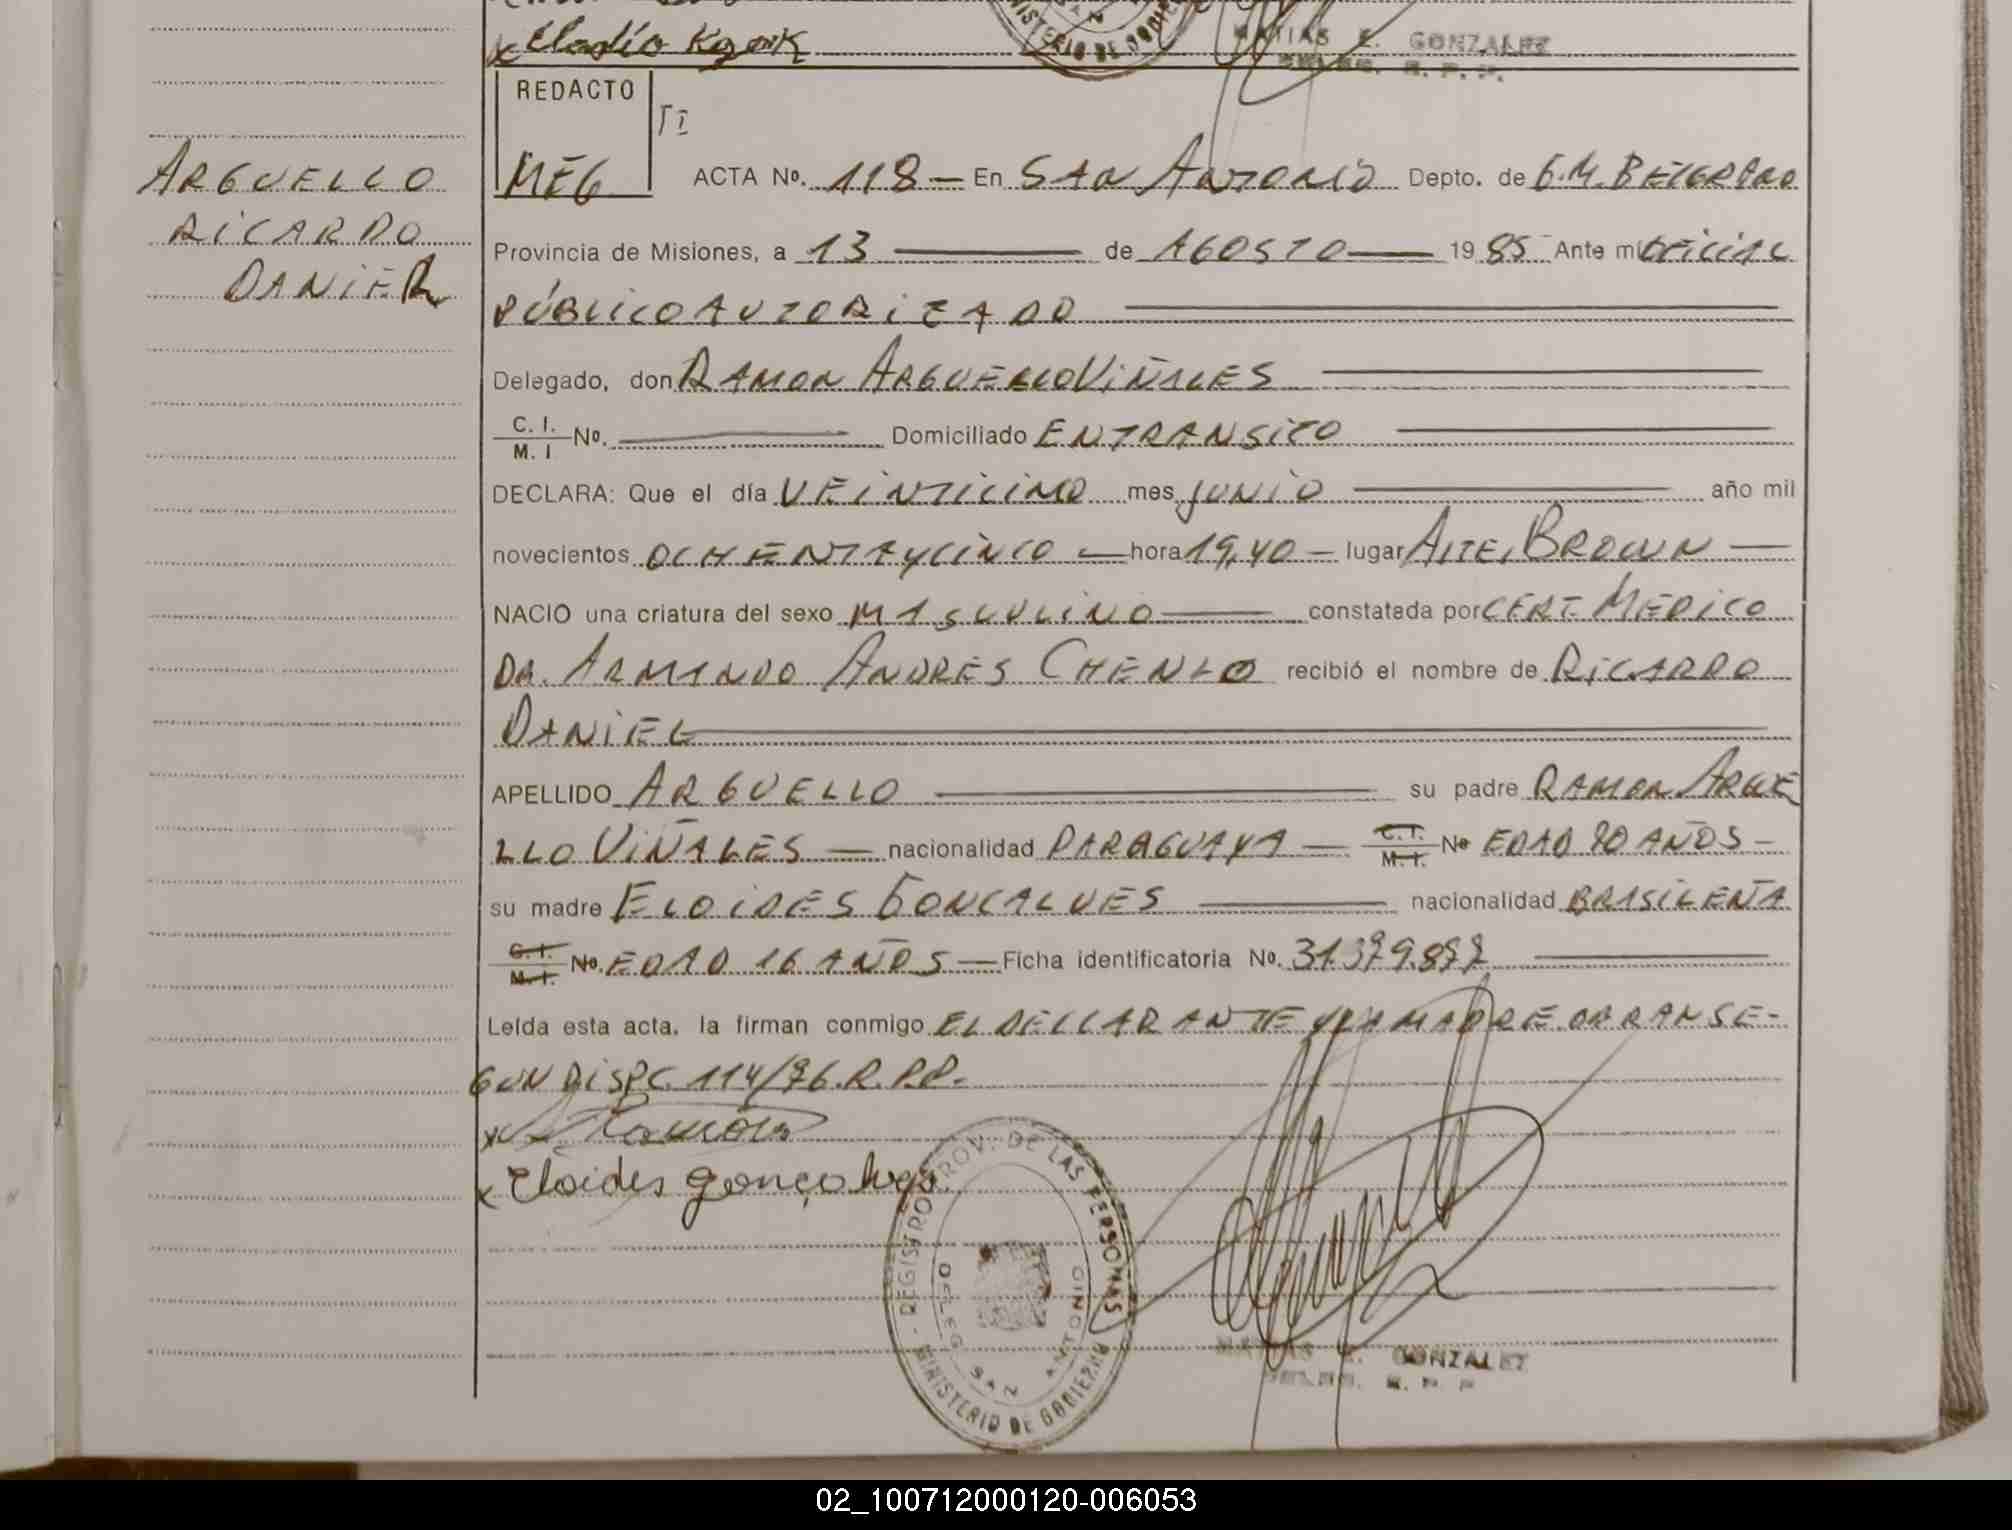 Eladio Kozik
MATIAS E. GONZALEZ
DELEG. R. P. P.
REDACTO
MEG
ARGUELLO
RICARDO
DANIEL
ACTA Nº. 118 — En SAN ANTONIO Depto. de G.M. BELGRANO
Provincia de Misiones, a 13 — de AGOSTO — 1985 Ante mi OFICIAL
PÚBLICO AUTORIZADO —
Delegado, don RAMON ARGUELLO VIÑALES —
C. I. / M. I Nº. — Domiciliado EN TRANSITO —
DECLARA: Que el día VEINTICINCO mes JUNIO — año mil
novecientos OCHENTA Y CINCO — hora 19,40 — lugar ALTE. BROWN —
NACIO una criatura del sexo MASCULINO — constatada por CERT. MEDICO
DR. ARMANDO ANDRES CHENLO recibió el nombre de RICARDO
DANIEL —
APELLIDO ARGUELLO — su padre RAMON ARGUE
LLO VIÑALES — nacionalidad PARAGUAYA — C. I. / M. I. Nº EDAD 20 AÑOS —
su madre ELOIDES GONCALVES — nacionalidad BRASILEÑA
C. I. / M. I. Nº. EDAD 16 AÑOS — Ficha identificatoria Nº. 31.379.877 —
Leída esta acta, la firman conmigo EL DECLARANTE Y LA MADRE OBRAN SE-
GUN DISPC. 114/76. R.P.P.-
x Ramón
x Eloides gonçalves
REGISTRO PROV. DE LAS PERSONAS
DELEG. SAN ANTONIO
MINISTERIO DE GOBIERNO
MATIAS E. GONZALEZ
DELEG. R. P. P.
02_100712000120-006053